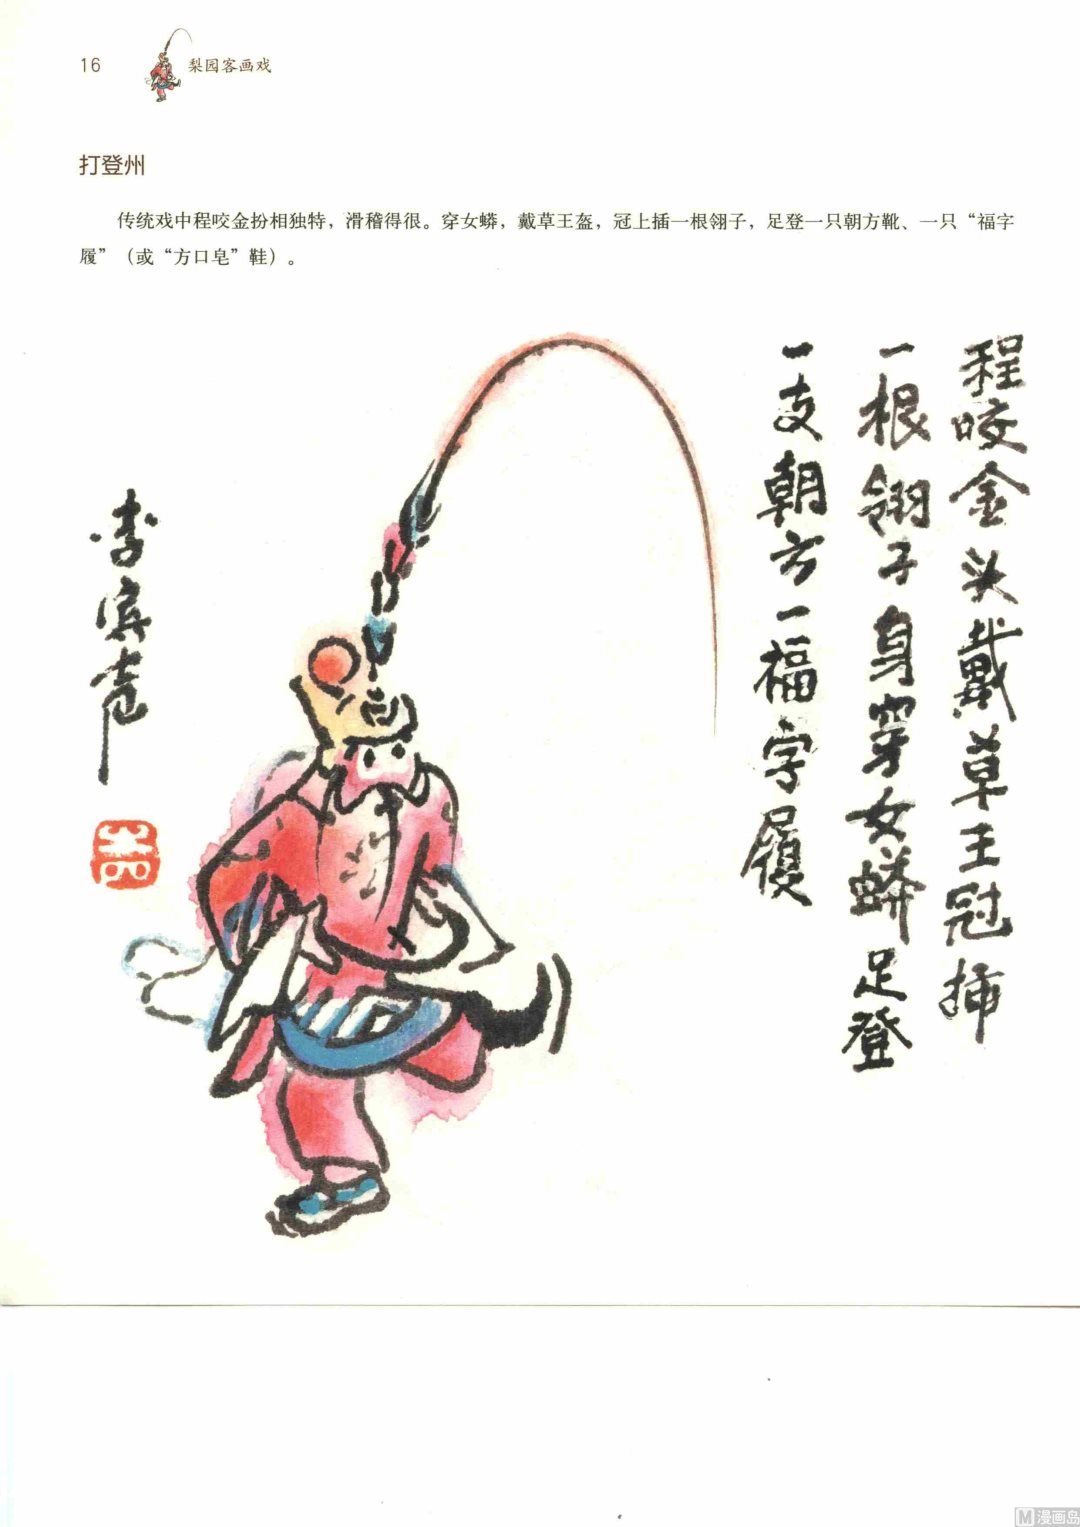 16
梨园客画戏
打登州
传统戏中程咬金扮相独特，滑稽得很。穿女蟒，戴草王盔，冠上插一根翎子，足登一只朝方靴、一只“福字
履”（或“方口皂”鞋）。
程咬金头戴草王冠插
一根翎子身穿女蟒足登
一支朝方一福字履
李滨声
漫画岛